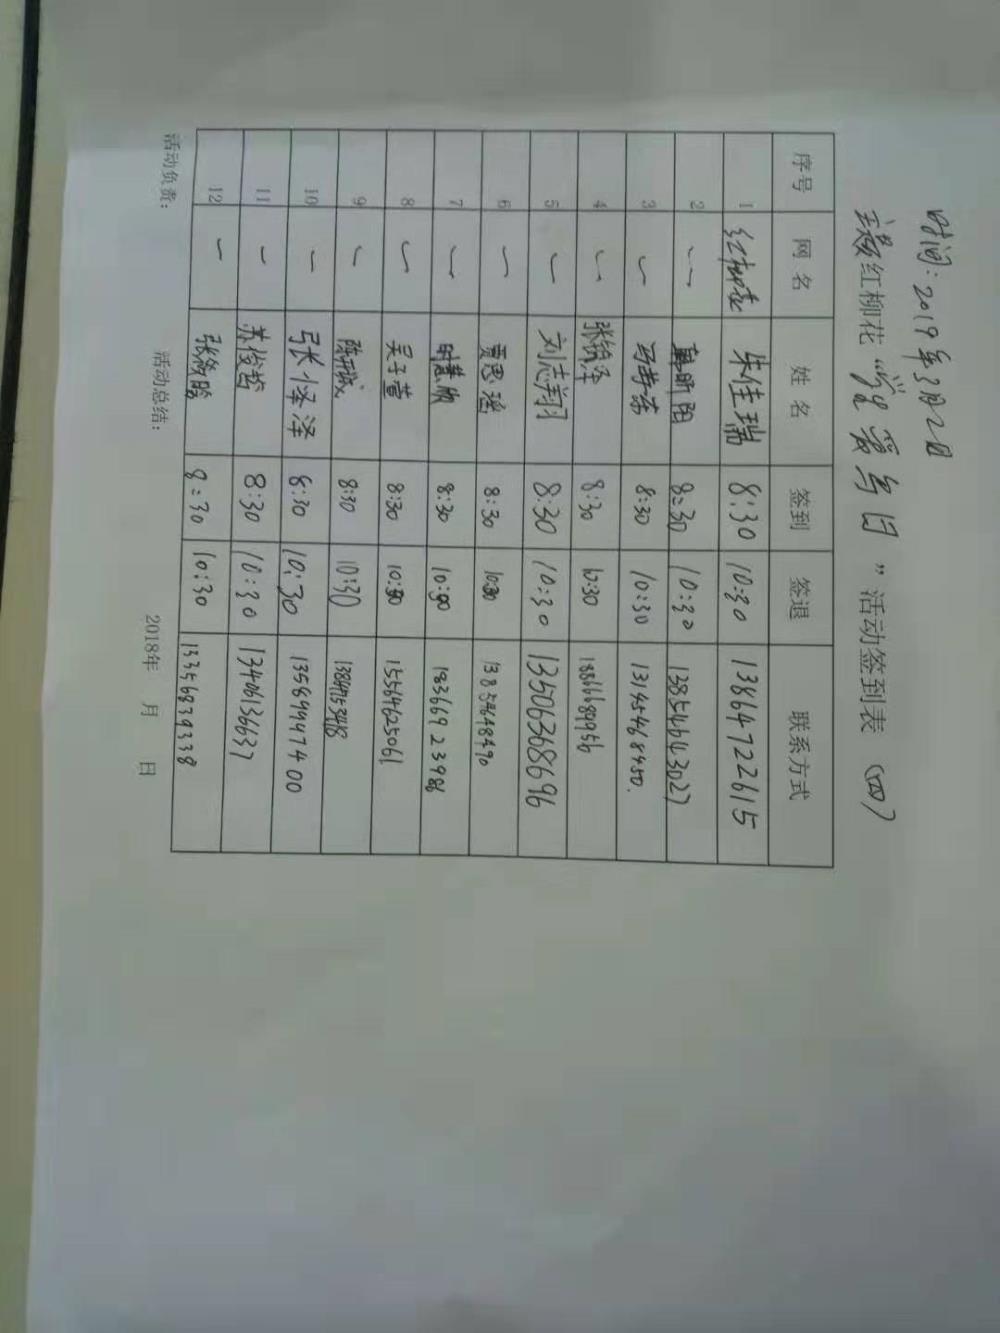 时间：2019年3月2日
红柳花“学雷锋日”活动签到表（四）
序号 网名 姓名 签到 签退 联系方式
1 红柳花 朱佳瑞 8:30 10:30 13864722615
2 8:30 10:30 13854643027
3 8:30 10:30 13145468450.
4 张铭泽 8:30 10:30 18666899956
5 刘志翔 8:30 10:30 13506368696
6 贾思 8:30 10:30 13854648490
7 时慧 8:30 10:30 18366923986
8 吴子萱 8:30 10:30 15564625061
9 8:30 10:30
10 张泽 8:30 10:30 13589947400
11 苏俊哲 8:30 10:30 13406136637
12 8:30 10:30 13356839338
活动负责： 活动总结： 2018年 月 日